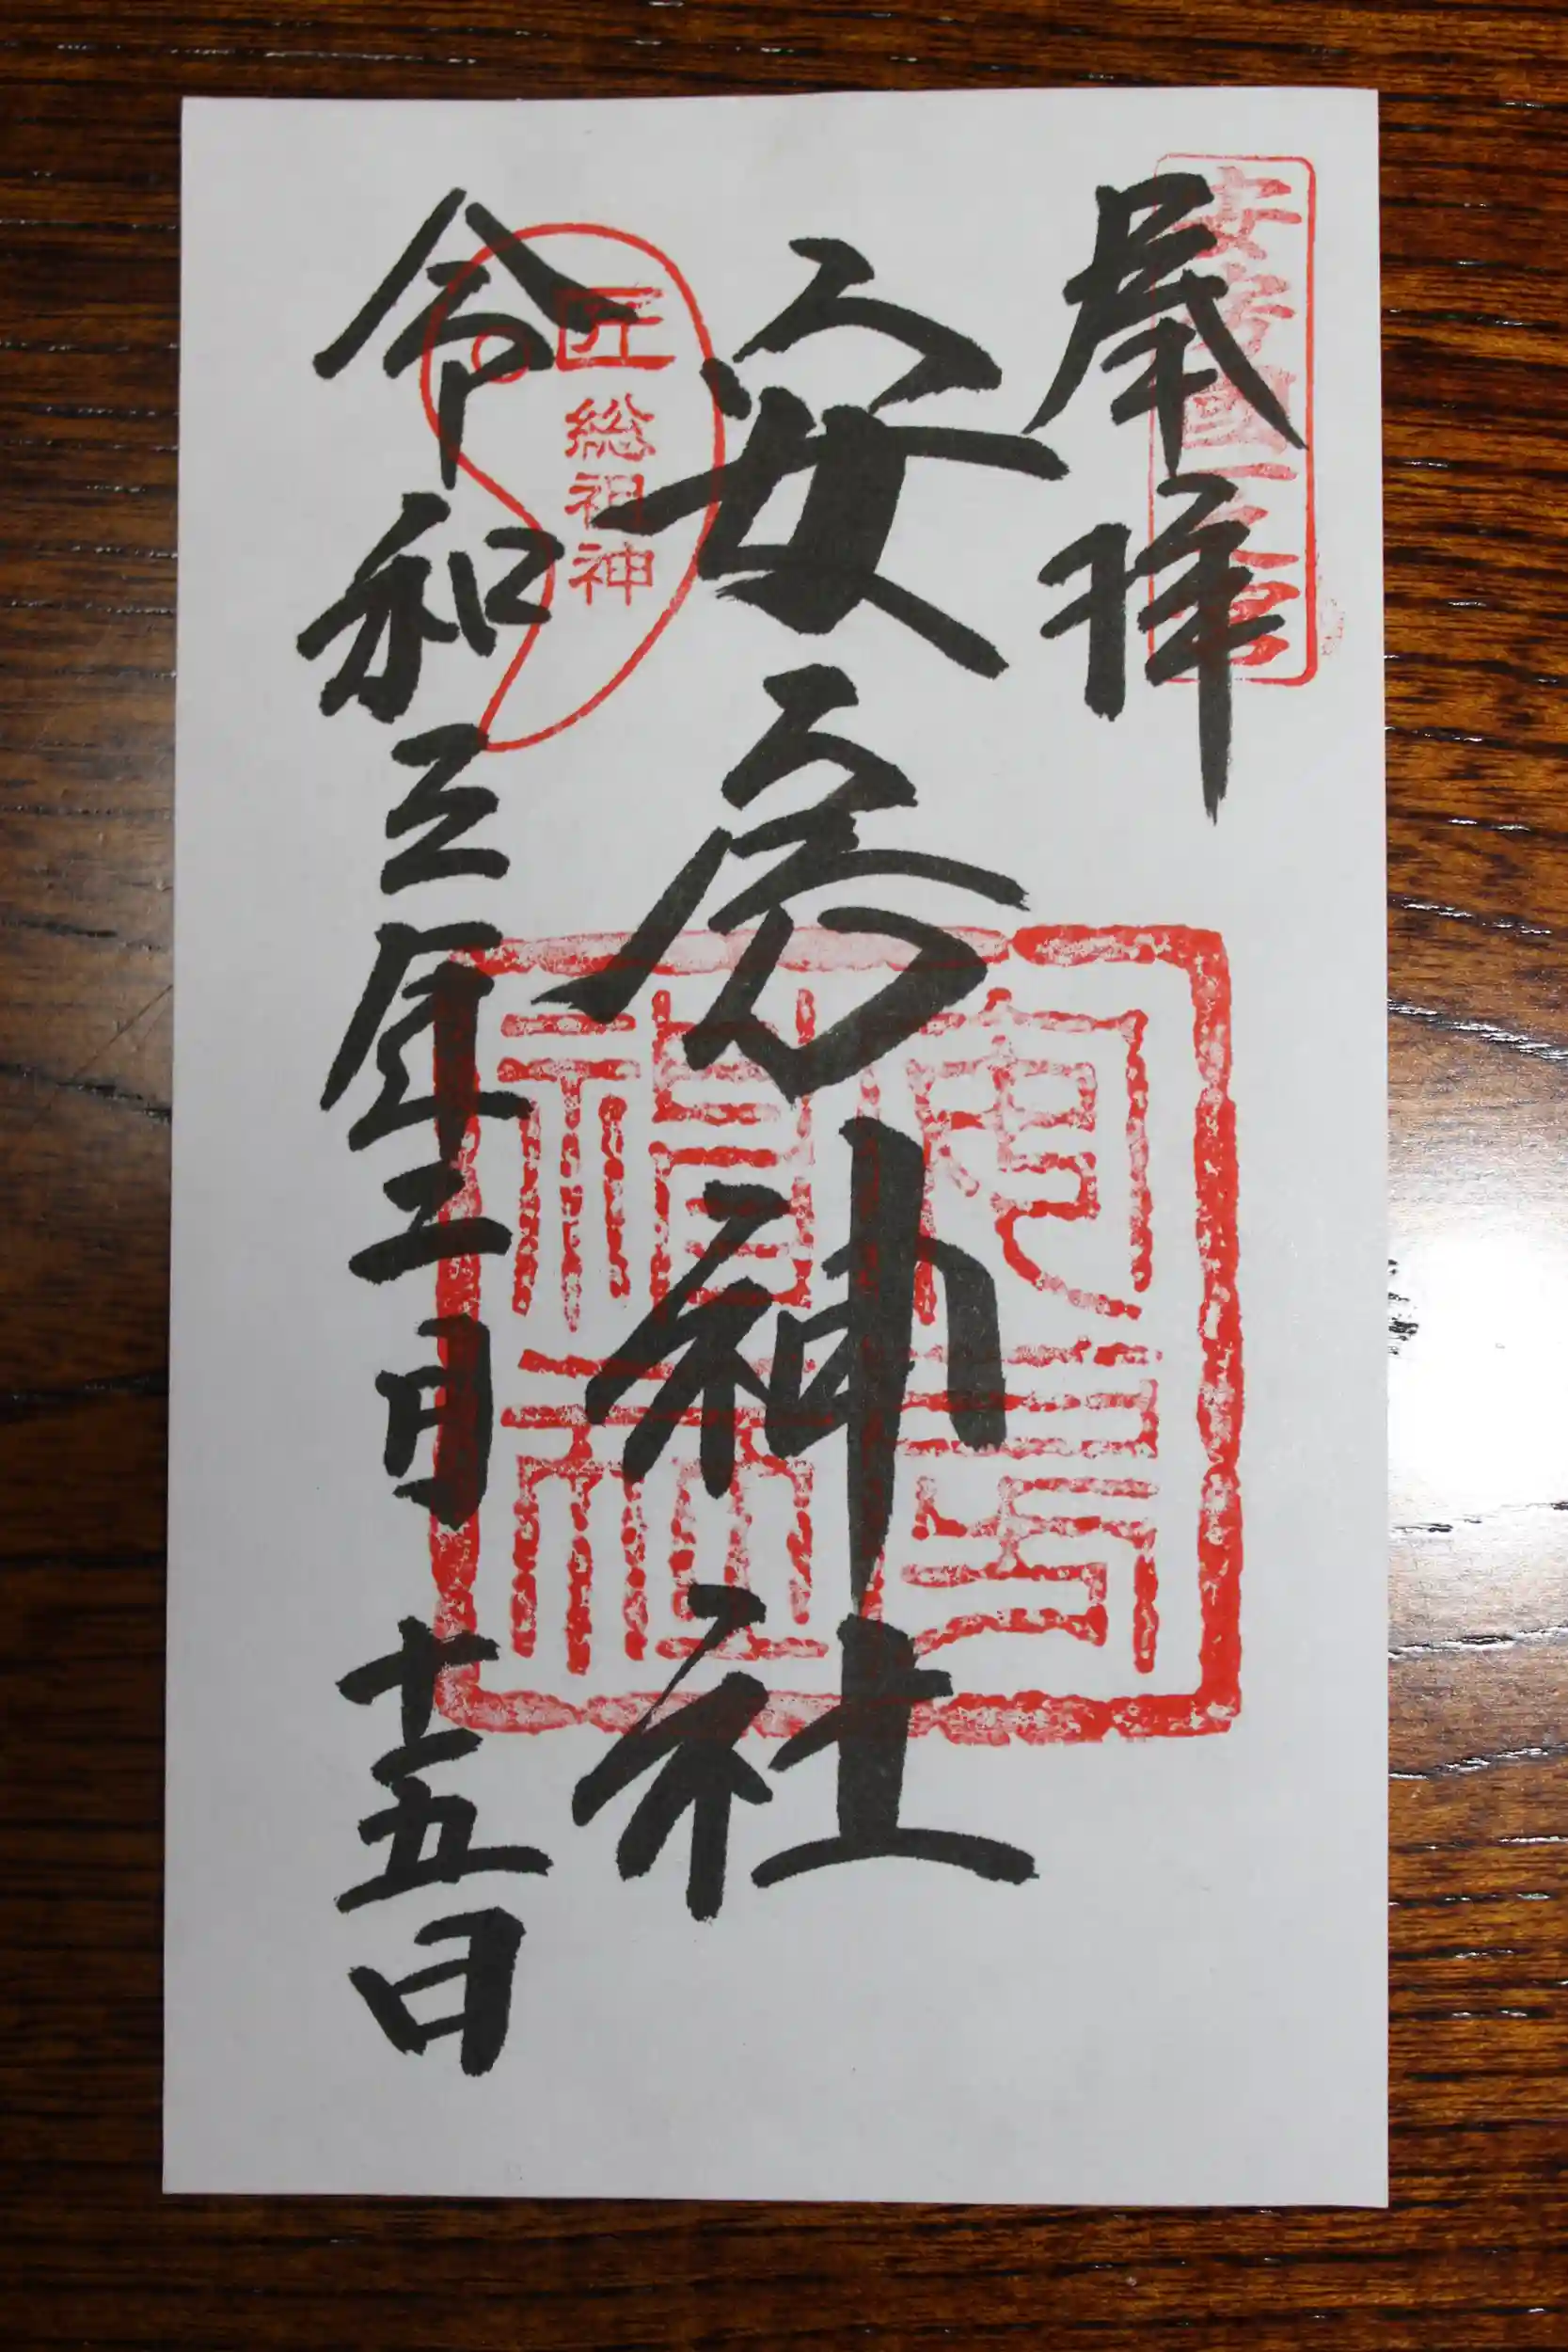 奉拝
安房國一之宮
安房神社
安房神社
匠
総祖神
令和三年二月十五日